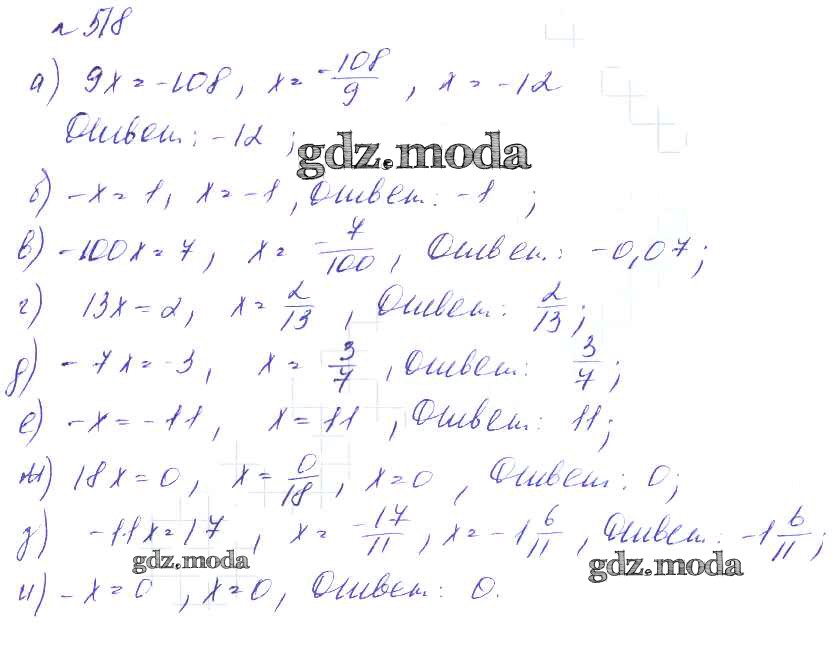 № 518
а) 9x = -108, x = -108/9, x = -12
Ответ: -12;
gdz.moda
б) -x = 1, x = -1, Ответ: -1;
в) -100x = 7, x = -7/100, Ответ: -0,07;
г) 13x = 2, x = 2/13, Ответ: 2/13;
д) -7x = -3, x = 3/7, Ответ: 3/7;
е) -x = -11, x = 11, Ответ: 11;
ж) 18x = 0, x = 0/18, x = 0, Ответ: 0;
з) -11x = 17, x = -17/11, x = -1 6/11, Ответ: -1 6/11;
gdz.moda
gdz.moda
и) -x = 0, x = 0, Ответ: 0.